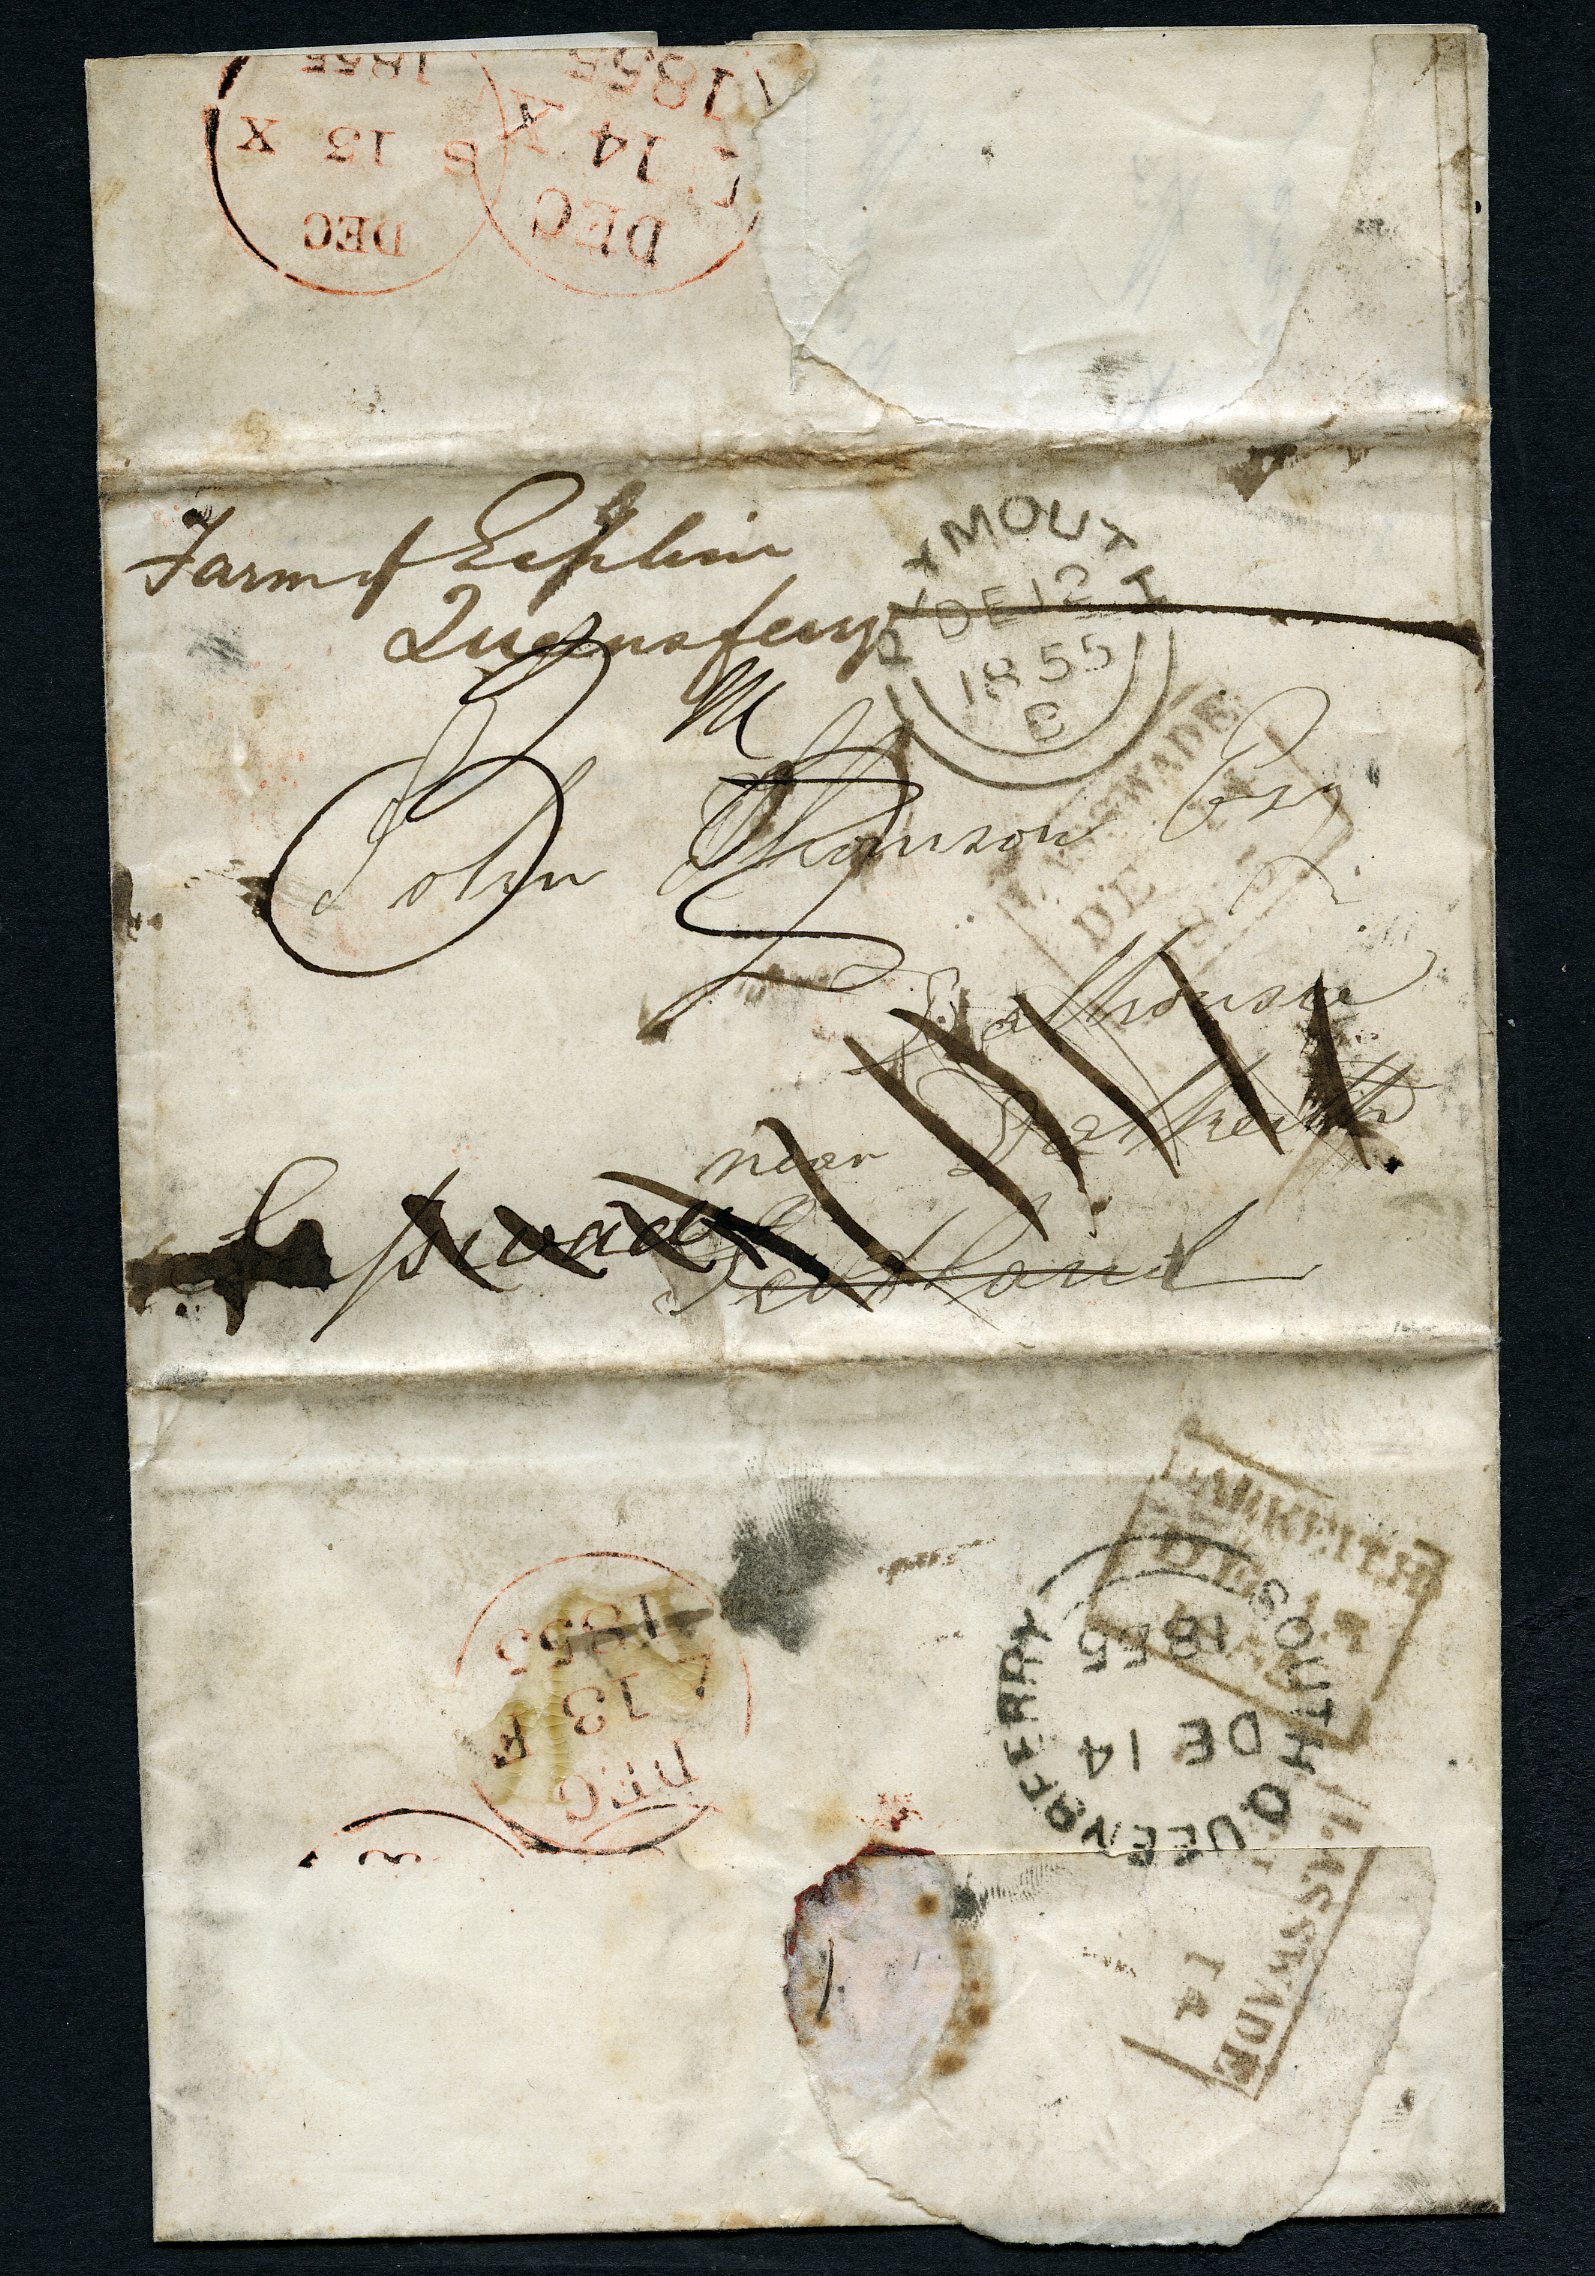 1855
S 13 X
DEC
1855
14 X
DEC
Farm of Echline
Queensferry
PLYMOUTH
DE 12
1855
B
John Thomson Esq
LASSWADE
DE
Dalhousie
near Dalkeith
Lasswade
Scotland
DALKEITH
DE
1855
1855
13 F
DEC
SOUTH QUEENSFERRY
1855
DE 14
LASSWADE
14